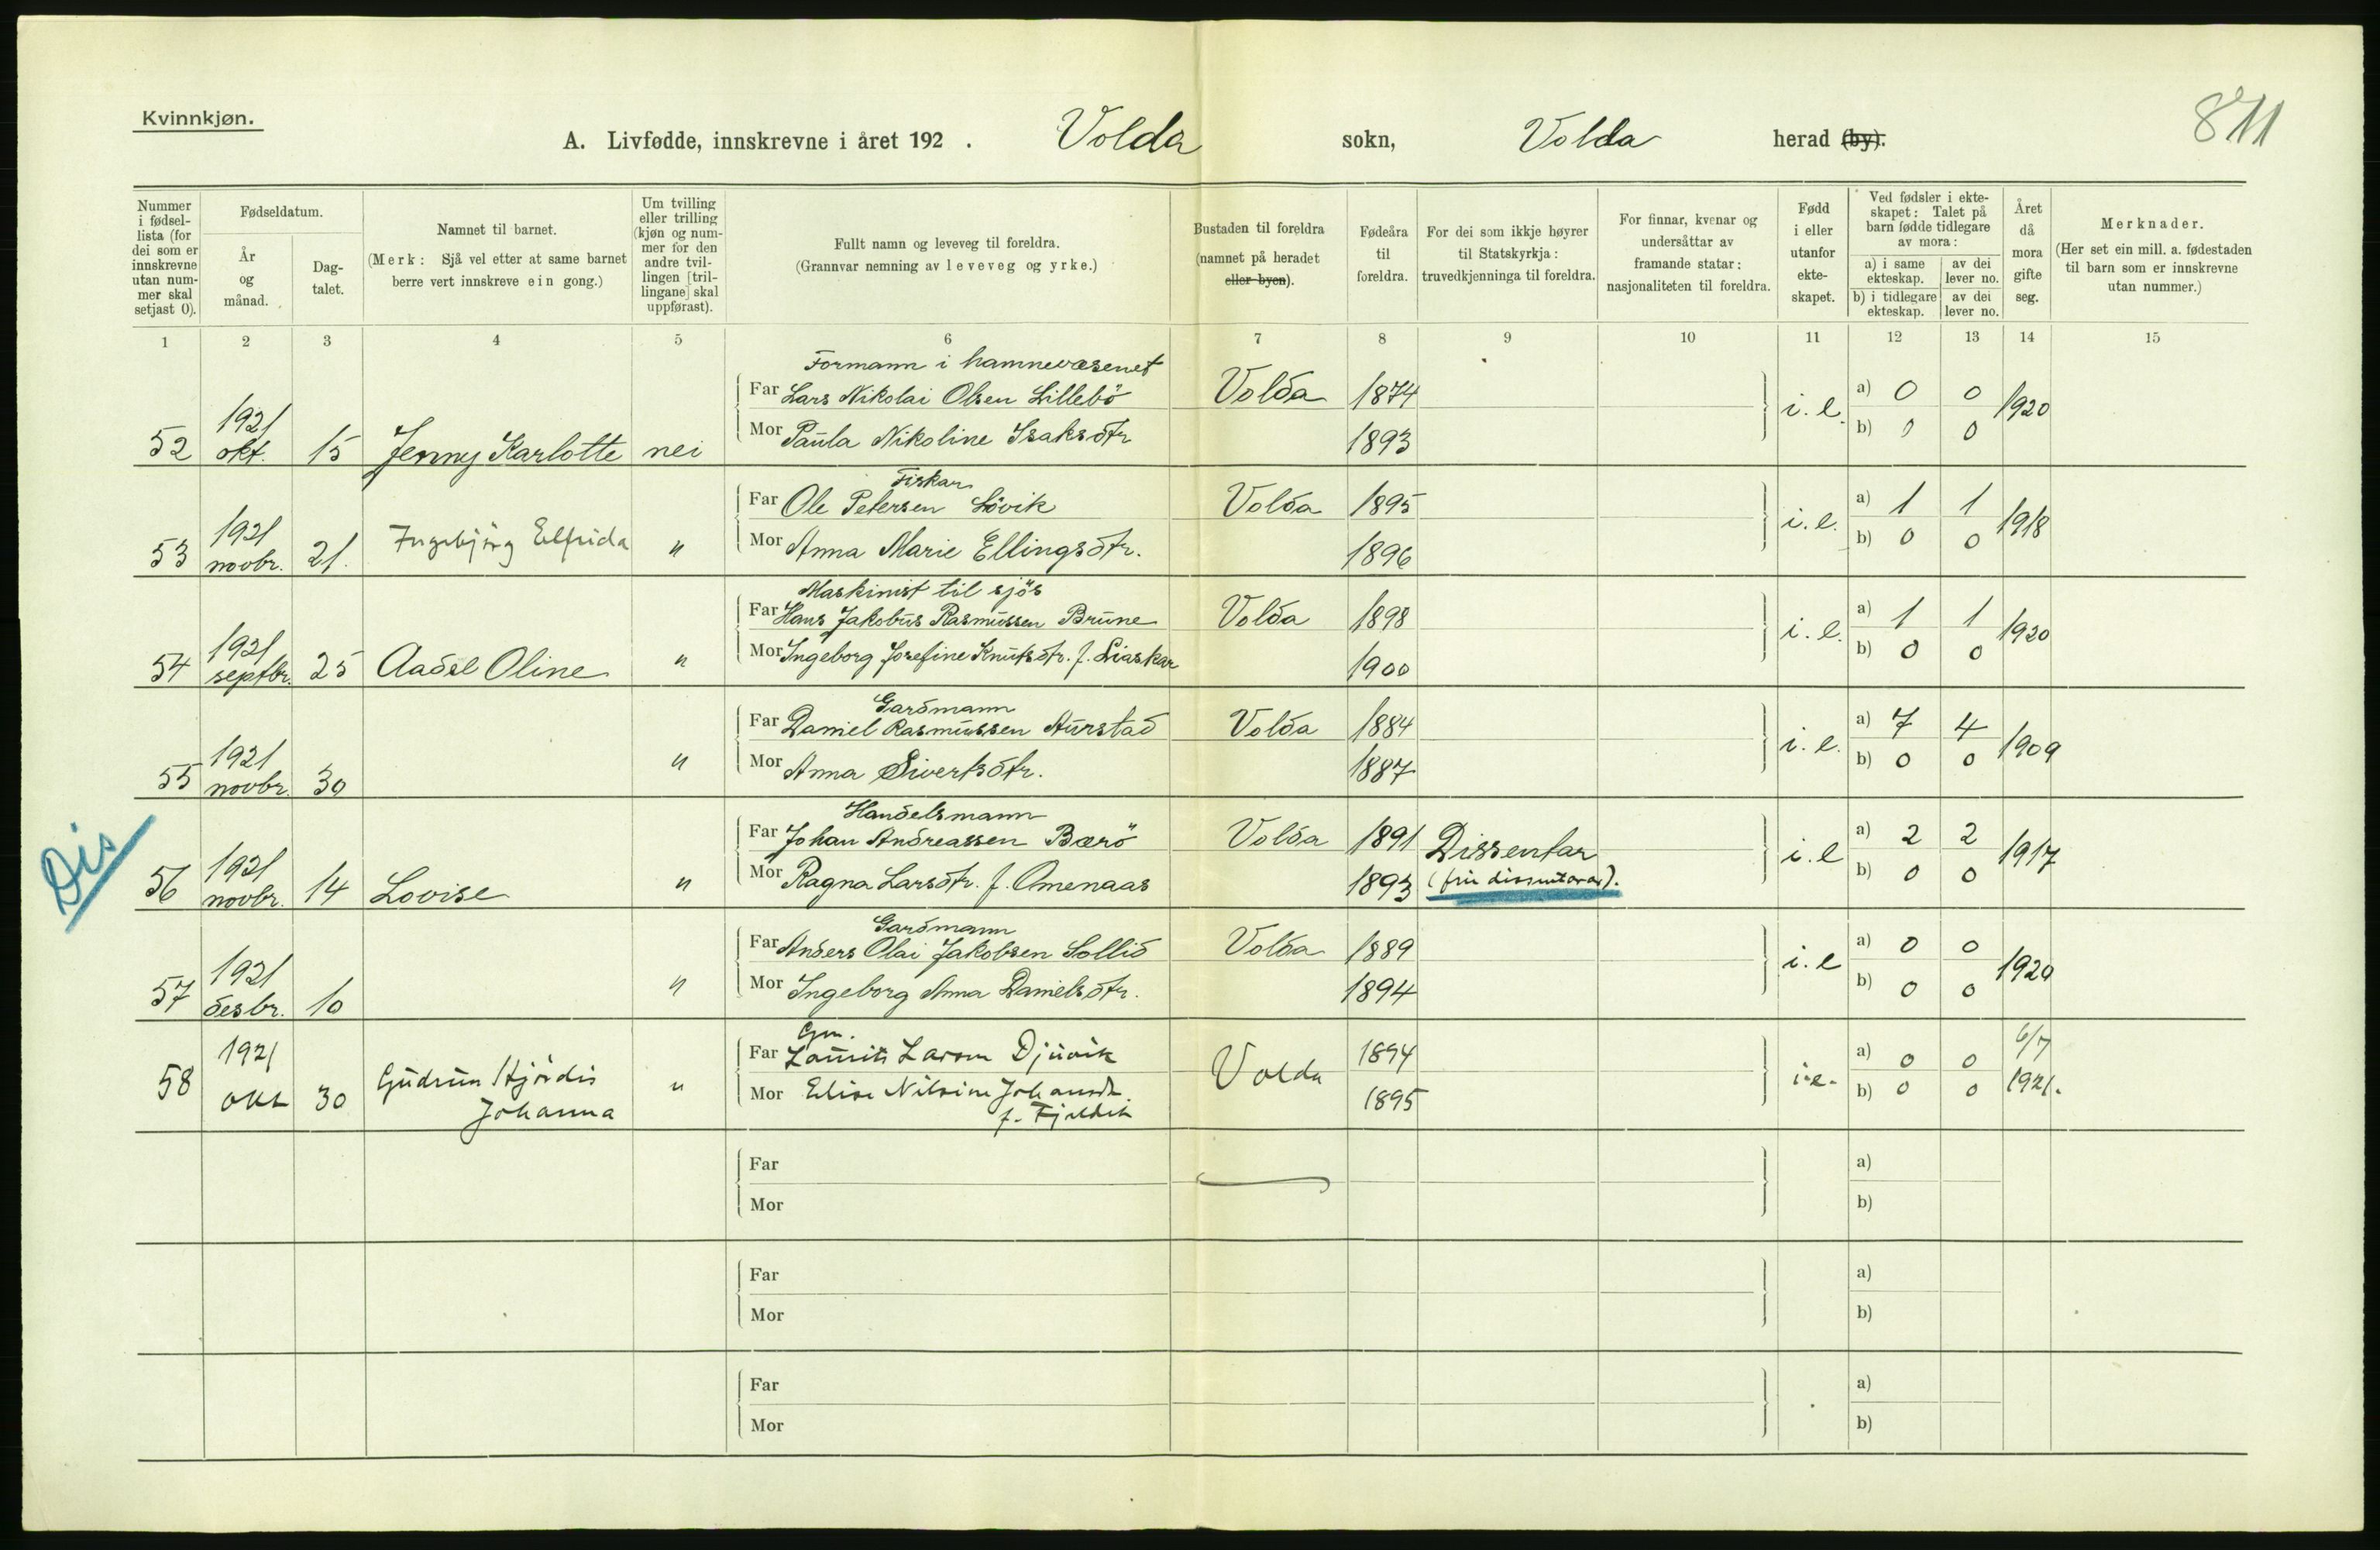 Kvinnkjøn.
811
A. Livfødde, innskrevne i året 192 . Volda sokn, Volda herad (by).
Nummer i fødsel-lista (for dei som er innskrevne utan num-mer skal setjast 0).
Fødseldatum.
År og månad.
Dag-talet.
Namnet til barnet.
(Merk: Sjå vel etter at same barnet berre vert innskreve ein gong.)
Um tvilling eller trilling (kjøn og num-mer for den andre tvil-lingen [tril-lingane] skal uppførast).
Fullt namn og leveveg til foreldra.
(Grannvar nemning av leveveg og yrke.)
Bustaden til foreldra (namnet på heradet eller byen).
Fødeåra til foreldra.
For dei som ikkje høyrer til Statskyrkja: truvedkjenninga til foreldra.
For finnar, kvenar og undersåttar av framande statar: nasjonaliteten til foreldra.
Fødd i eller utanfor ekte-skapet.
Ved fødsler i ekte-skapet: Talet på barn fødde tidlegare av mora:
a) i same ekteskap. av dei lever no.
b) i tidlegare ekteskap. av dei lever no.
Året då mora gifte seg.
Merknader.
(Her set ein mill. a. fødestaden til barn som er innskrevne utan nummer.)
1 2 3 4 5 6 7 8 9 10 11 12 13 14 15
Formann i hamnevæsenet
52 1921 okt. 15 Jenny Karlotte nei Far Lars Nikolai Olsen Lillebö Volda 1874 i. e. a) 0 0 1920
Mor Paula Nikoline Isaksdtr 1893 b) 0 0
Fiskar
53 1921 novbr. 21. Ingebjörg Elfrida " Far Ole Petersen Lövik Volda 1895 i. e. a) 1 1 1918
Mor Anna Marie Ellingsdtr. 1896 b) 0 0
Maskinist til sjös
54 1921 septbr. 25 Aadel Oline " Far Hans Jakobus Rasmussen Brune Volda 1898 i. e. a) 1 1 1920
Mor Ingeborg Josefine Knutsdtr. f. Liaskar 1900 b) 0 0
Gardmann
55 1921 novbr. 30 " Far Daniel Rasmussen Aurstad Volda 1884 i. e. a) 7 4 1909
Mor Anna Sivertsdtr. 1887 b) 0 0
Dis
Handelsmann
56 1921 novbr. 14 Lovise " Far Johan Andreassen Bærö Volda 1891 Dissentar i. e a) 2 2 1917
Mor Ragna Larsdtr. f. Omenaas 1893 (fri dissentarar). b) 0 0
Gardmann
57 1921 desbr. 10 " Far Anders Olai Jakobsen Sollid Volda 1889 i. e a) 0 0 1920
Mor Ingeborg Anna Danielsdtr. 1894 b) 0 0
Gm.
58 1921 okt 30 Gudrun Hjördis Johanna " Far Lauritz Larsen Djuvik Volda 1894 i. e. a) 0 0 6/7 1921.
Mor Elise Nilsine Johansdt. 1895 b) 0 0
Far a)
Mor b)
Far a)
Mor b)
Far a)
Mor b)